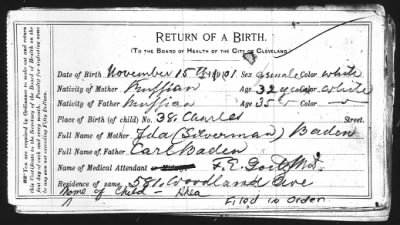 RETURN OF A BIRTH.
(TO THE BOARD OF HEALTH OF THE CITY OF CLEVELAND.
Date of Birth November 15th 1901 Sex female Color white
Nativity of Mother Russian Age 32 y Color white
Nativity of Father Russian Age 35 Color
Place of Birth (of child) No. 381 Charles Street.
Full Name of Mother Ida (Silverman) Baden
Full Name of Father Earl Baden
Name of Medical Attendant F. E. M.D.
Residence of same 581 Woodland Ave
Name of Child - Rhea
Filed in Order
You are required by Ordinance to make out and return
this Certificate to the Secretary of the Board of Health on the
first day of each and every month. Penalty for neglecting same
not exceeding Fifty Dollars.